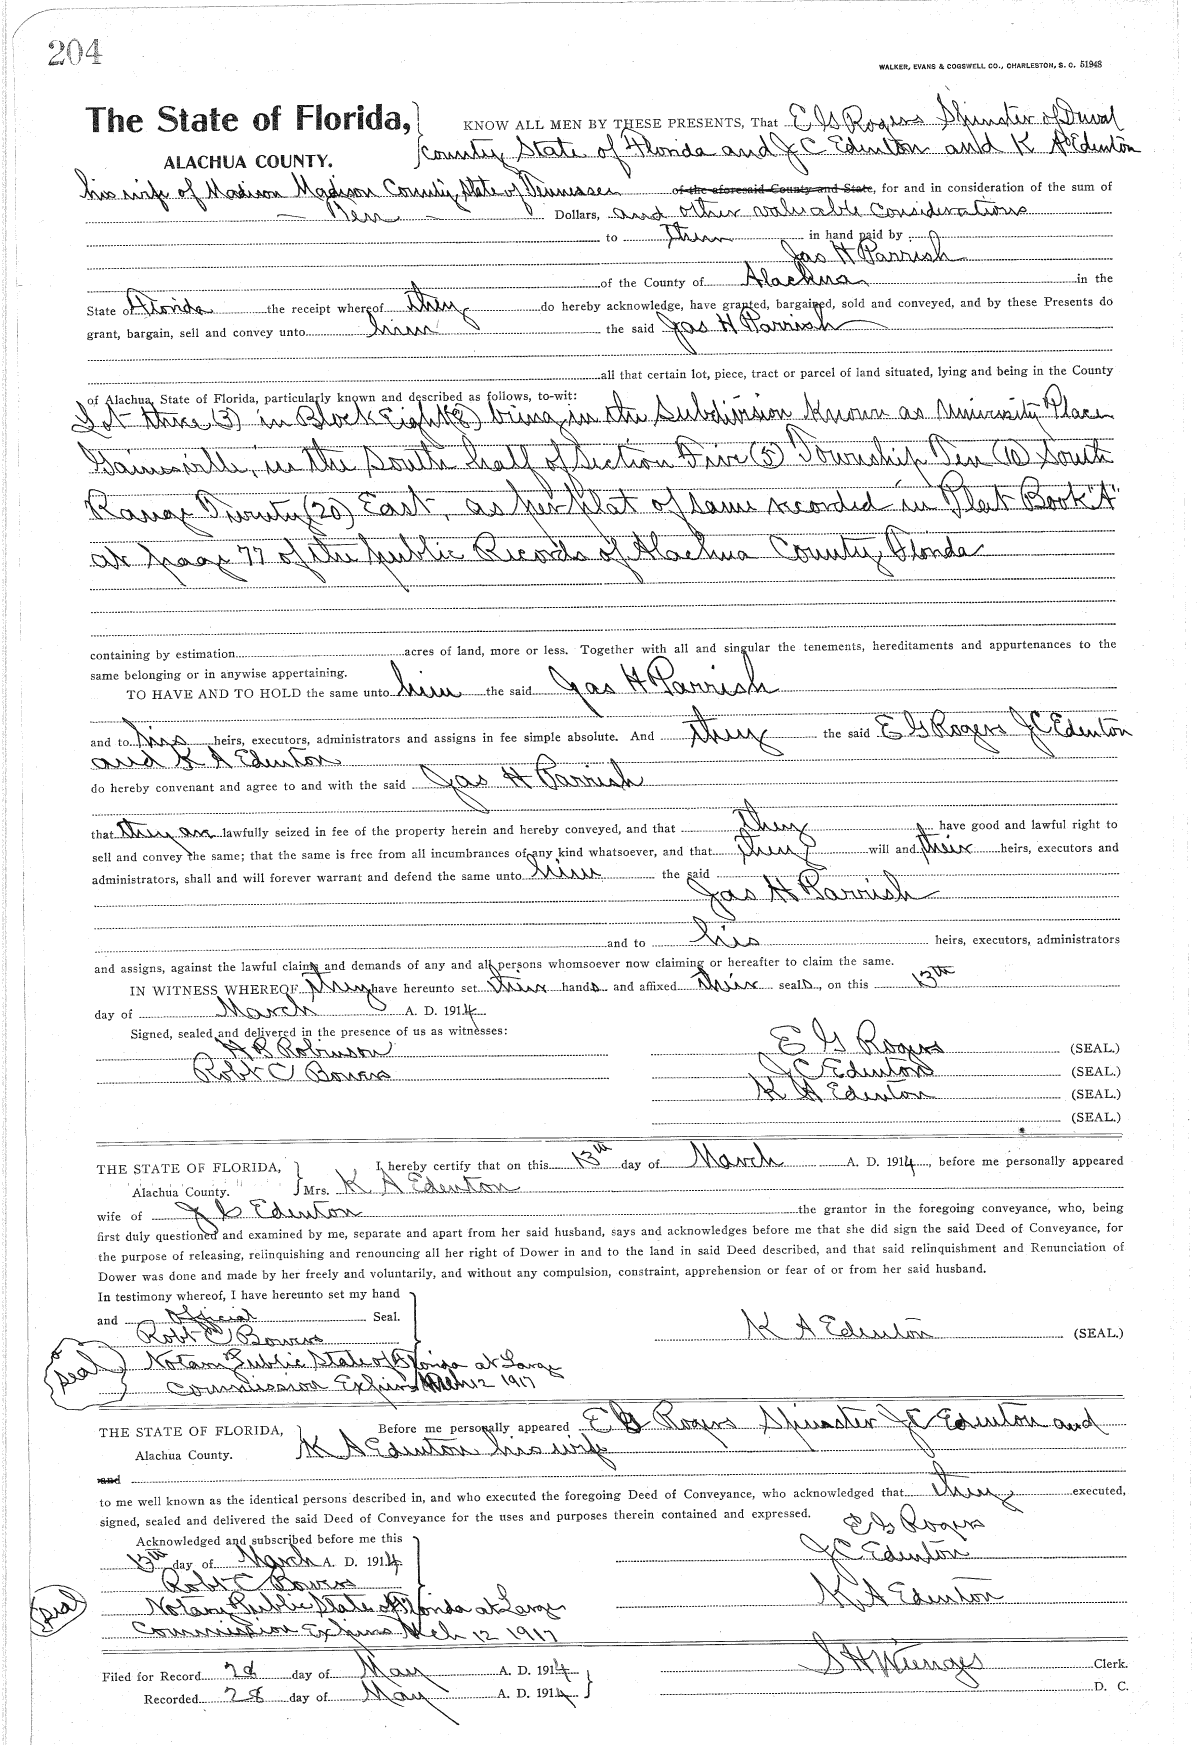 204
WALKER, EVANS & COGSWELL CO., CHARLESTON, S. C. 51948
The State of Florida, KNOW ALL MEN BY THESE PRESENTS, That E G Rogers Spinster of Duval
ALACHUA COUNTY. County, State of Florida and J C Edenton and K A Edenton
his wife of Madison Madison County, State of Tennessee of the aforesaid County and State, for and in consideration of the sum of
— Ten — Dollars, and other valuable considerations
to them in hand paid by
Jas H Parrish
of the County of Alachua in the
State of Florida the receipt whereof they do hereby acknowledge, have granted, bargained, sold and conveyed, and by these Presents do
grant, bargain, sell and convey unto him the said Jas H Parrish
all that certain lot, piece, tract or parcel of land situated, lying and being in the County
of Alachua, State of Florida, particularly known and described as follows, to-wit:
Lot three (3) in Block Eight (8) being in the Subdivision known as University Place
Gainesville, in the South half of Section Five (5) Township Ten (10) South
Range Twenty (20) East, as per plat of same recorded in Plat Book "A"
at page 77 of the public Records of Alachua County, Florida
containing by estimation acres of land, more or less. Together with all and singular the tenements, hereditaments and appurtenances to the
same belonging or in anywise appertaining.
TO HAVE AND TO HOLD the same unto him the said Jas H Parrish
and to his heirs, executors, administrators and assigns in fee simple absolute. And they the said E G Rogers J C Edenton
and K A Edenton
do hereby convenant and agree to and with the said Jas H Parrish
that they are lawfully seized in fee of the property herein and hereby conveyed, and that they have good and lawful right to
sell and convey the same; that the same is free from all incumbrances of any kind whatsoever, and that they will and their heirs, executors and
administrators, shall and will forever warrant and defend the same unto him the said
Jas H Parrish
and to his heirs, executors, administrators
and assigns, against the lawful claims and demands of any and all persons whomsoever now claiming or hereafter to claim the same.
IN WITNESS WHEREOF, they have hereunto set their hands and affixed their seals, on this 13th
day of March A. D. 1914.
Signed, sealed and delivered in the presence of us as witnesses:
H B Robinson E G Rogers (SEAL.)
Robt C Bowers J C Edenton (SEAL.)
K A Edenton (SEAL.)
(SEAL.)
THE STATE OF FLORIDA, I hereby certify that on this 13th day of March A. D. 1914, before me personally appeared
Alachua County. Mrs. K A Edenton
wife of J C Edenton the grantor in the foregoing conveyance, who, being
first duly questioned and examined by me, separate and apart from her said husband, says and acknowledges before me that she did sign the said Deed of Conveyance, for
the purpose of releasing, relinquishing and renouncing all her right of Dower in and to the land in said Deed described, and that said relinquishment and Renunciation of
Dower was done and made by her freely and voluntarily, and without any compulsion, constraint, apprehension or fear of or from her said husband.
In testimony whereof, I have hereunto set my hand
and Official Seal.
Robt C Bowers K A Edenton (SEAL.)
Seal Notary Public State of Florida at Large
Commission Expires Mch 12 1917
THE STATE OF FLORIDA, Before me personally appeared E G Rogers Spinster J C Edenton and
Alachua County. K A Edenton his wife
and
to me well known as the identical persons described in, and who executed the foregoing Deed of Conveyance, who acknowledged that they executed,
signed, sealed and delivered the said Deed of Conveyance for the uses and purposes therein contained and expressed.
Acknowledged and subscribed before me this E G Rogers
13th day of March A. D. 1914 J C Edenton
Robt C Bowers K A Edenton
Seal Notary Public State of Florida at Large
Commission Expires Mch 12 1917
Filed for Record 28 day of May A. D. 1914 S H Wienges Clerk.
Recorded 28 day of May A. D. 1914 D. C.